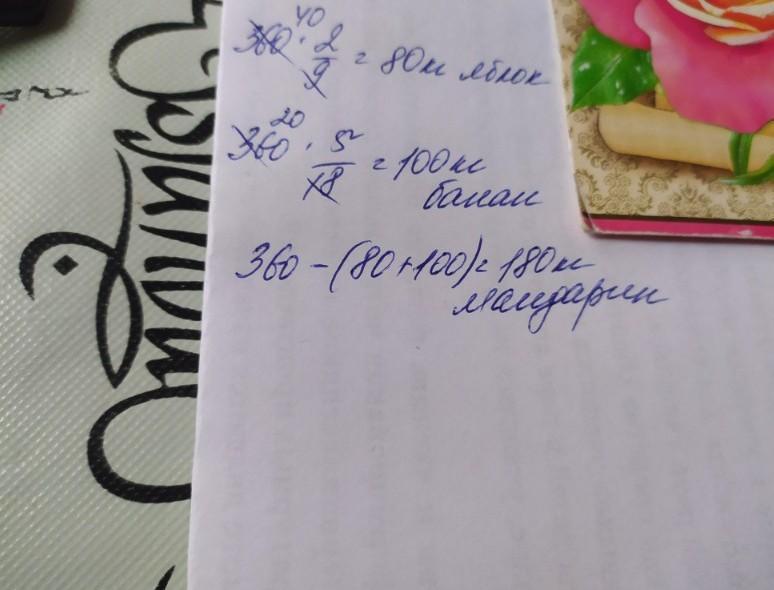 40
360 · 2/9 = 80кг яблок
20
360 · 5/18 = 100кг
банан
360 - (80+100) = 180кг
мандарин